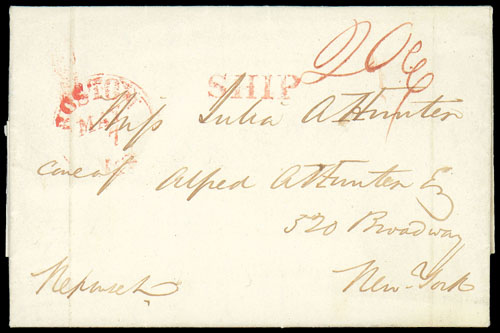 BOSTON
MAY
1
SHIP
20
Miss Julia A Hunter
care of Alfred A Hunter Esq
520 Broadway
New-York
Neponset